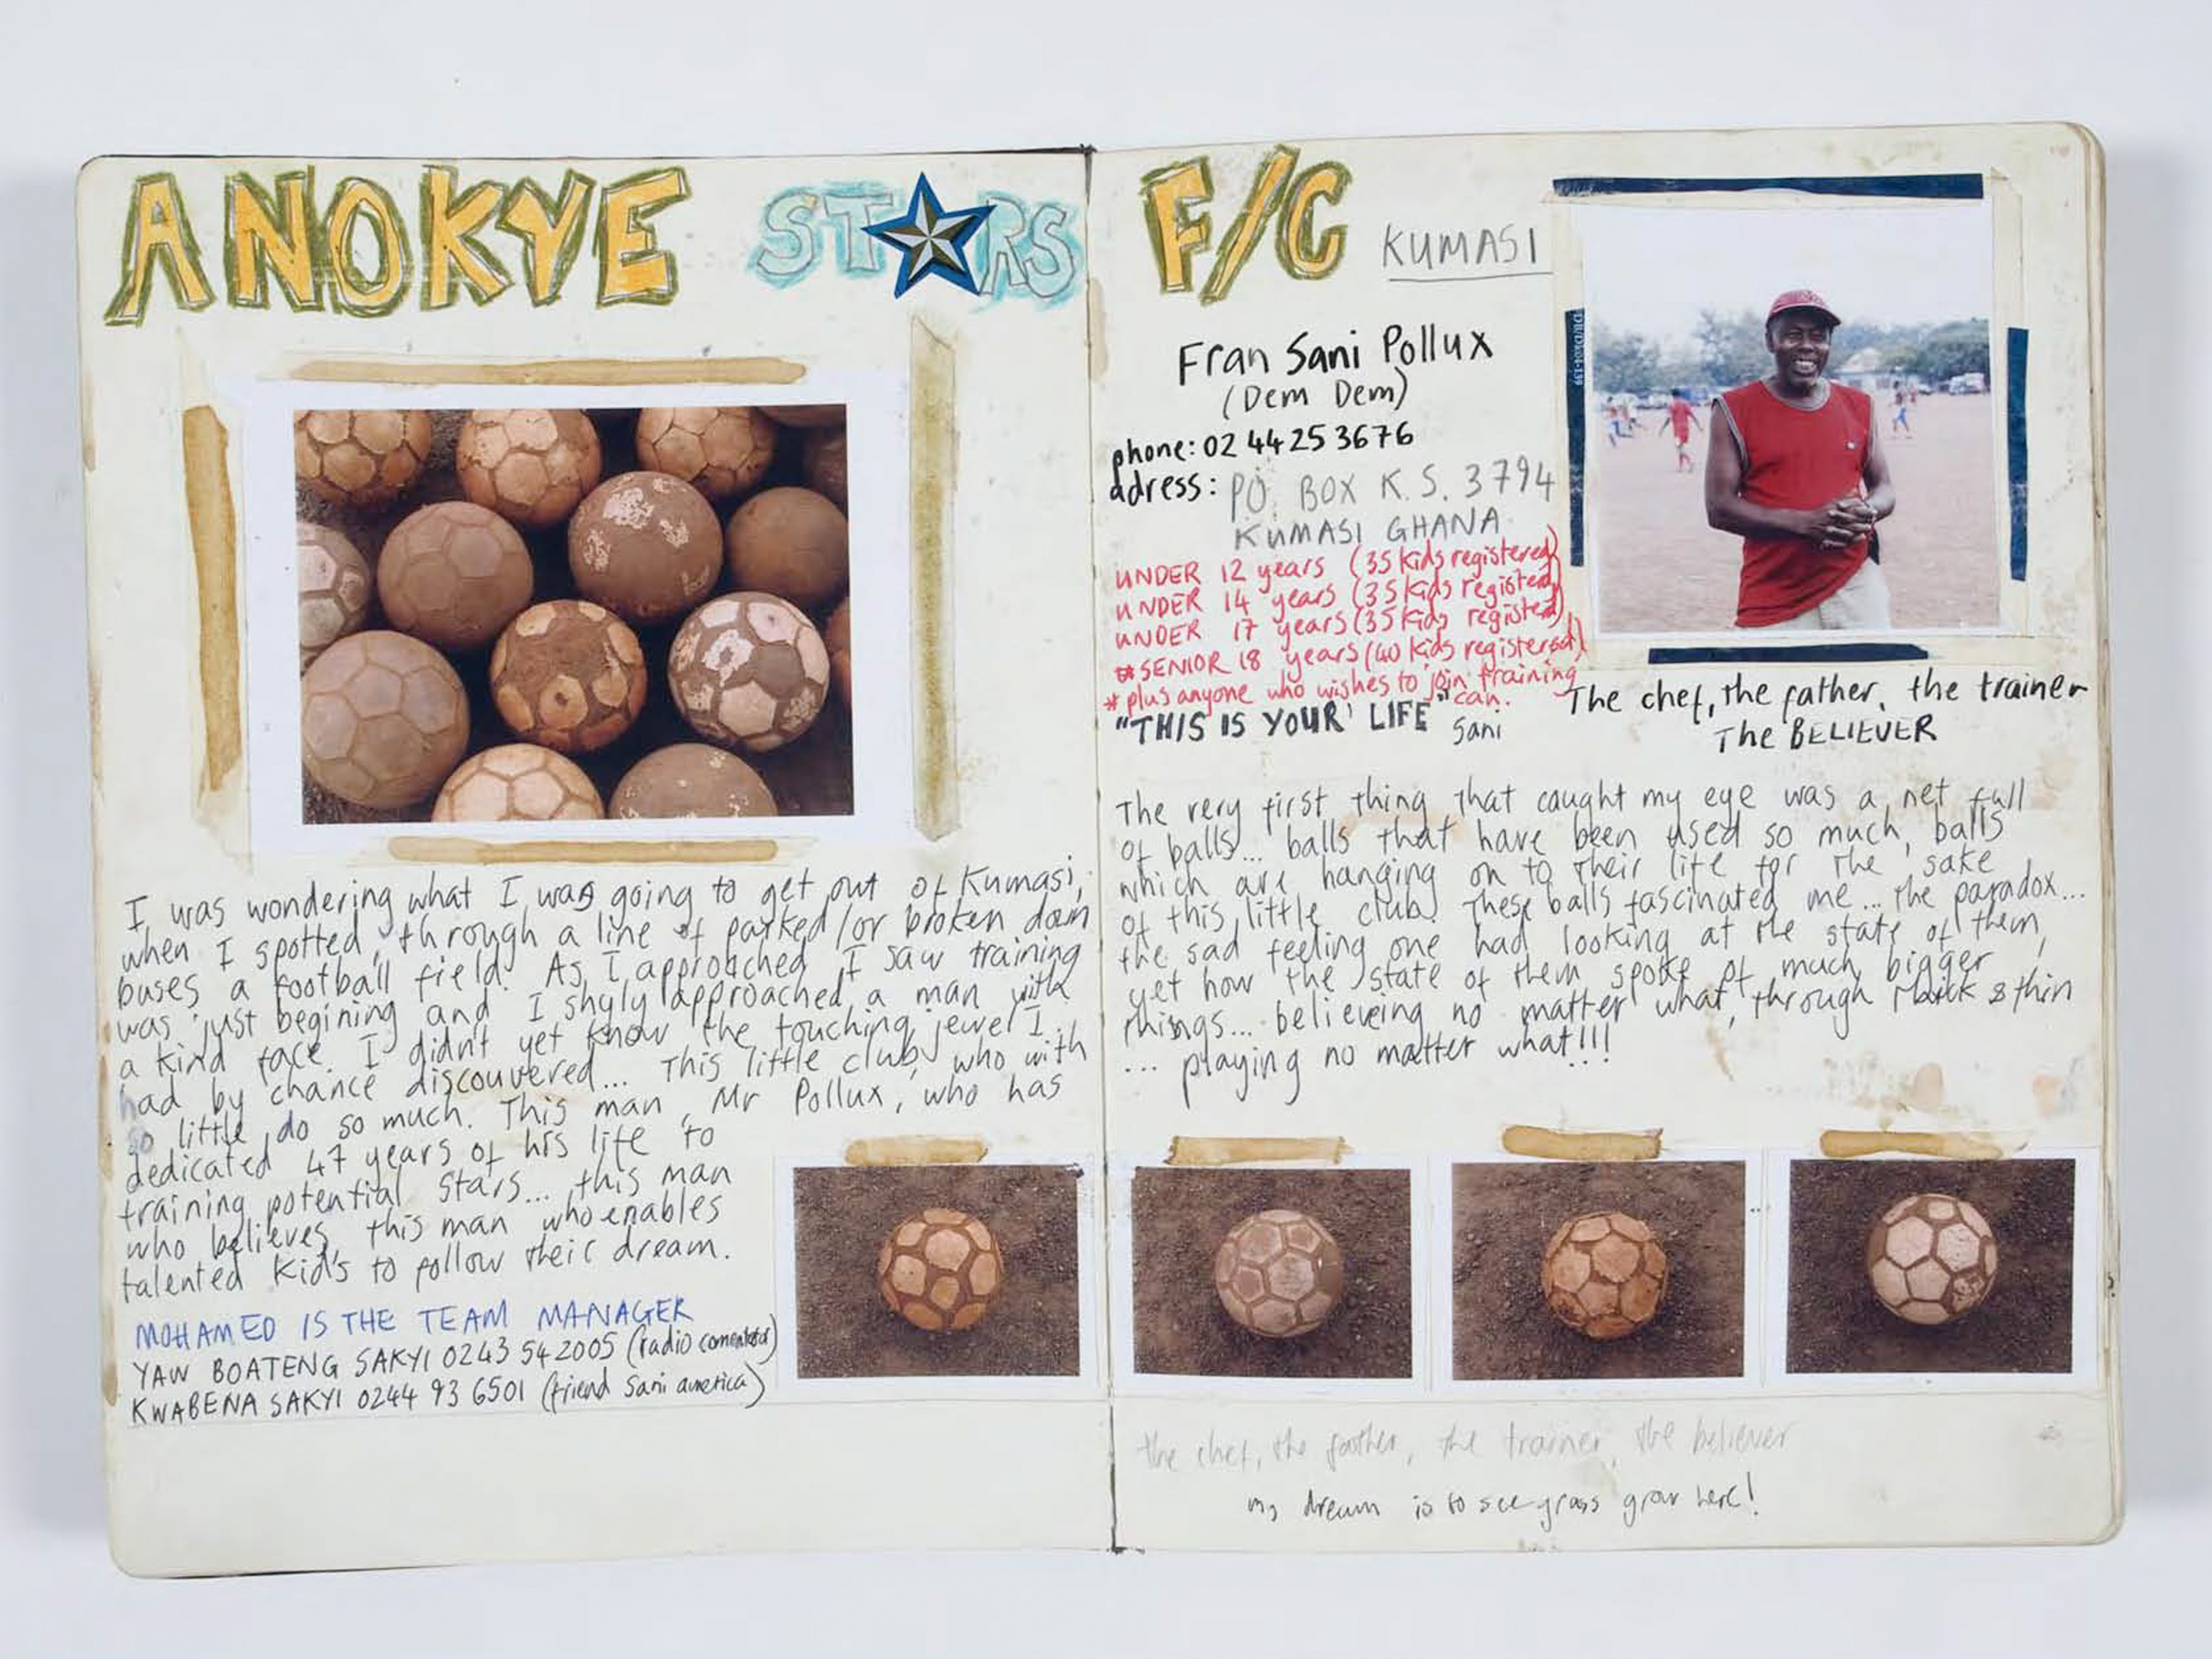 ANOKYE STARS F/C KUMASI
I was wondering what I was going to get out of Kumasi,
when I spotted, through a line of parked /or broken down
buses a football field. As I approached I saw training
was just begining and I shyly approached a man with
a kind face. I didn't yet know the touching jewel I
had by chance discouvered... This little club, who with
so little do so much. This man, Mr Pollux, who has
dedicated 47 years of his life to
training potential stars... this man
who believes, this man who enables
talented kid's to follow their dream.
MOHAMED IS THE TEAM MANAGER
YAW BOATENG SAKYI 0243 54 2005 (radio comentator)
KWABENA SAKYI 0244 93 6501 (friend Sani america)
Fran Sani Pollux
(Dem Dem)
phone: 02 44 25 3676
adress: PO. BOX K.S. 3794
KUMASI GHANA
UNDER 12 years (35 kids registered)
UNDER 14 years (35 kids registed)
UNDER 17 years (35 kids registed)
* SENIOR 18 years (40 kids registered)
* plus anyone who wishes to join training
can.
"THIS IS YOUR LIFE" Sani
The chef, the father, the trainer
The BELIEVER
The very first thing that caught my eye was a net full
of balls... balls that have been used so much, balls
which are hanging on to their life for the sake
of this little club. These balls fascinated me... the paradox...
the sad feeling one had looking at the state of them,
yet how the state of them spoke of much bigger
things... believeing no matter what, through thick & thin
... playing no matter what!!!
the chef, the father, the trainer, the believer
my dream is to see grass grow here!